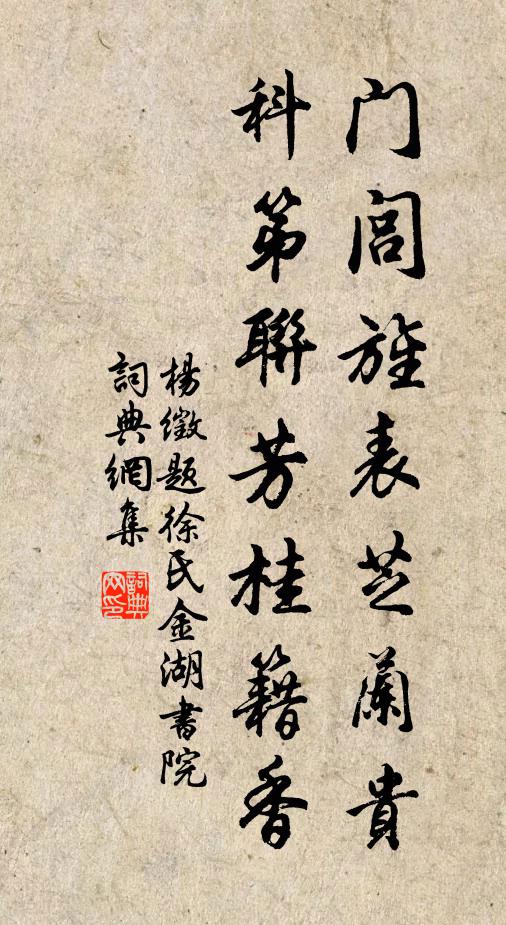 门闾旌表芝蘭貴
科第聯芳桂籍香
楊徵題徐氏金湖書院
詞典網集
詞典网印